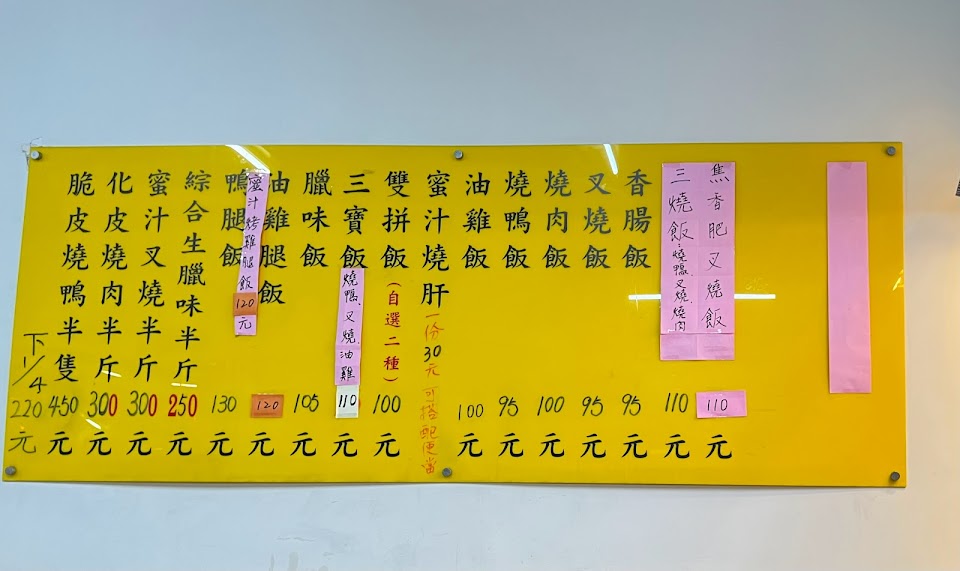 焦香肥叉燒飯 110元
三燒飯:燒鴨、叉燒、燒肉 110元
香腸飯 95元
叉燒飯 95元
燒肉飯 100元
燒鴨飯 95元
油雞飯 100元
蜜汁燒肝 一份30元 可搭配便當
雙拼飯(自選二種) 100元
三寶飯 燒鴨、叉燒油雞 110元
臘味飯 105元
油雞腿飯 120元
蜜汁烤雞腿飯120元
鴨腿飯 130元
綜合生臘味半斤 250元
蜜汁叉燒半斤 300元
化皮燒肉半斤 300元
脆皮燒鴨半隻 450元
下1/4 220元